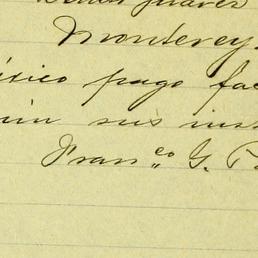 Juarez
Monterey.
éxico pago fac
ún sus inst
Fran.co G. P